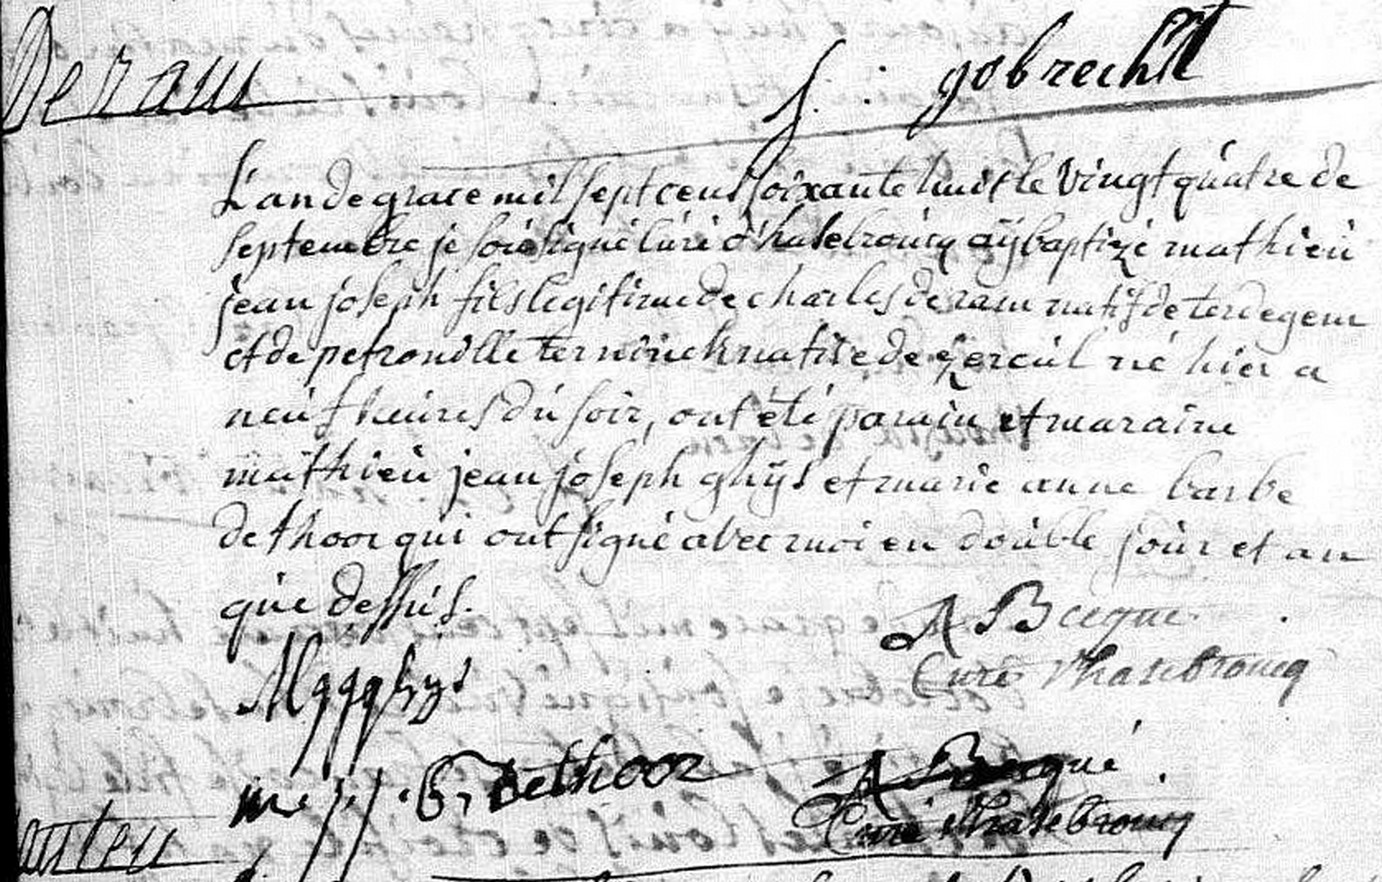 De ram
J. gobrecht
L'an de grace mil sept cent soixante huit le vingt quatre de
septembre je soúsigné Cúré d'hasebroúcq aÿ baptizé mathieú
jean joseph fils legitime de charles de ram natif de terdegem
et de petronille ternÿnck native de né hier a
neúf heúres dú soir, ont été parain et maraine
mathieú jean joseph ghÿs et marie anne barbe
dethoor qui ont signé avec moi en doúble joúr et an
que dessús.
A Becque
Curé d'hasebroucq
ghys
B. dethoor
A Becqué
Curé d'hasebroucq